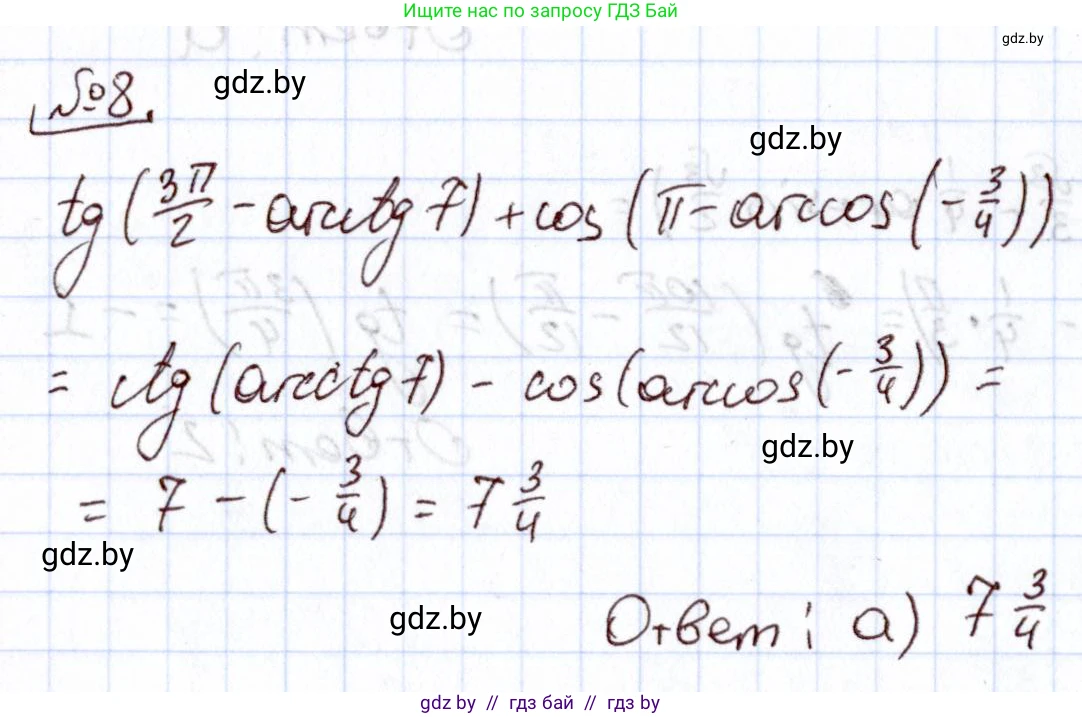 Ищите нас по запросу ГДЗ Бай
gdz.by
№8.
gdz.by
gdz.by
tg(3π/2 - arcctg 7) + cos(π - arccos(-3/4))
= ctg(arcctg 7) - cos(arccos(-3/4)) =
gdz.by
= 7 - (-3/4) = 7 3/4
gdz.by
gdz.by
Ответ: а) 7 3/4
gdz.by // гдз бай // гдз.by